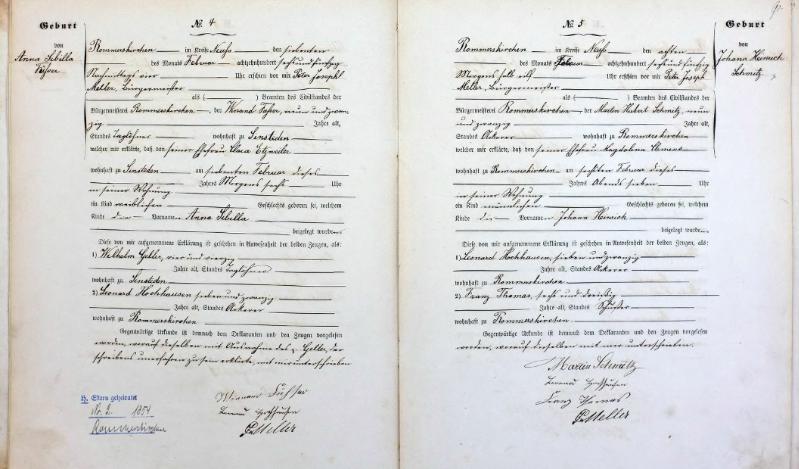 Geburt
von
Anna Sibilla
№ 4
Rommerskirchen im Kreise Neuss den siebenten
des Monats Februar achtzehnhundert sechs und fünfzig
Nachmittags vier Uhr erschien vor mir Peter Joseph
Meller, Bürgermeister
als Beamten des Civilstandes der
Bürgermeisterei Rommerskirchen der neun und zwan
zig Jahre alt,
Standes Taglöhner wohnhaft zu Sinsteden
welcher mir erklärte, daß von seiner Ehefrau
wohnhaft zu Sinsteden am siebenten Februar dieses
Jahres Morgens sechs Uhr
in seiner Wohnung
ein Kind weiblichen Geschlechts geboren sei, welchem
Kinde der Vorname Anna Sibilla
beigelegt wurde
Diese von mir aufgenommene Erklärung ist geschehen in Anwesenheit der beiden Zeugen, als:
1) Wilhelm Geller, vier und vierzig
Jahre alt, Standes Taglöhner
wohnhaft zu Sinsteden
2) Leonard Hochhausen sieben und zwanzig
Jahre alt, Standes Ackerer
wohnhaft zu Rommerskirchen
Gegenwärtige Urkunde ist demnach dem Deklaranten und den Zeugen vorgelesen
worden, worauf dieselben mit Ausnahme des Geller, der
schreibens unerfahren zu sein erklärte, mit mir unterschrieben
Leonard Hochhausen
P. J. Meller
Eltern geheiratet
Nr. 2. 1854
Rommerskirchen
№ 5
Geburt
von
Johann Heinrich
Schmitz
Rommerskirchen im Kreise Neuss den achten
des Monats Februar achtzehnhundert sechs und fünfzig
Morgens halb elf Uhr erschien vor mir Peter Joseph
Meller, Bürgermeister
als Beamten des Civilstandes der
Bürgermeisterei Rommerskirchen der Martin Hubert Schmitz, neun
und zwanzig Jahre alt,
Standes Ackerer wohnhaft zu Rommerskirchen
welcher mir erklärte, daß von seiner Ehefrau Magdalena
wohnhaft zu Rommerskirchen am sechsten Februar dieses
Jahres Abends sieben Uhr
in seiner Wohnung
ein Kind männlichen Geschlechts geboren sei, welchem
Kinde die Vornamen Johann Heinrich
beigelegt wurden
Diese von mir aufgenommene Erklärung ist geschehen in Anwesenheit der beiden Zeugen, als:
1) Leonard Hochhausen, sieben und zwanzig
Jahre alt, Standes Ackerer
wohnhaft zu Rommerskirchen
2) Franz Thomas, sechs und dreißig
Jahre alt, Standes Schuster
wohnhaft zu Rommerskirchen
Gegenwärtige Urkunde ist demnach dem Deklaranten und den Zeugen vorgelesen
worden, worauf dieselben mit mir unterschrieben.
Martin Schmitz
Leonard Hochhausen
Franz Thomas
P. J. Meller